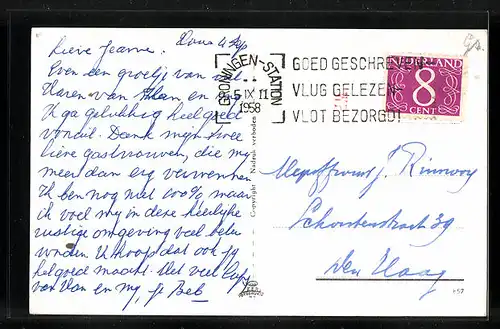 Lieve Jeanne.
Even een groetje van
Haren van
U ga gelukkig heel goed
vooruit. Dank mijn twee
lieve gastvrouwen, die my
meer dan erg verwennen
Ik ben nog niet 100% maar
ik voel my in deze heerlijke
rustige omgeving veel beter
worden. U hoop dat ook jy
het goed maakt. Met veel
van Han en my, je Bob
GRONINGEN-STATION
5 IX 11
1958
GOED GESCHREVEN
VLUG GELEZEN
VLOT BEZORGD!
NEDERLAND
8
CENT
Copyright Nadruk verboden
Mejuffrouw J.
39
Den Haag